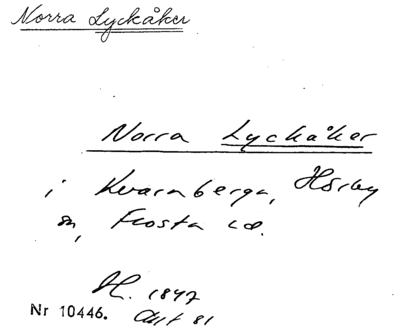 Norra Lyckåker
Norra Lyckåker
i Kvarnberga, Hörby
sn, Frosta hd.
H. 1847
Nr 10446. Akt 81